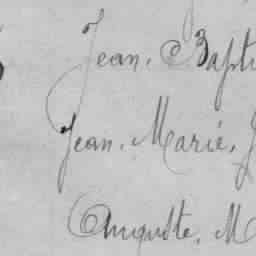 Jean, Bapti
Jean, Marie, J
Auguste, M